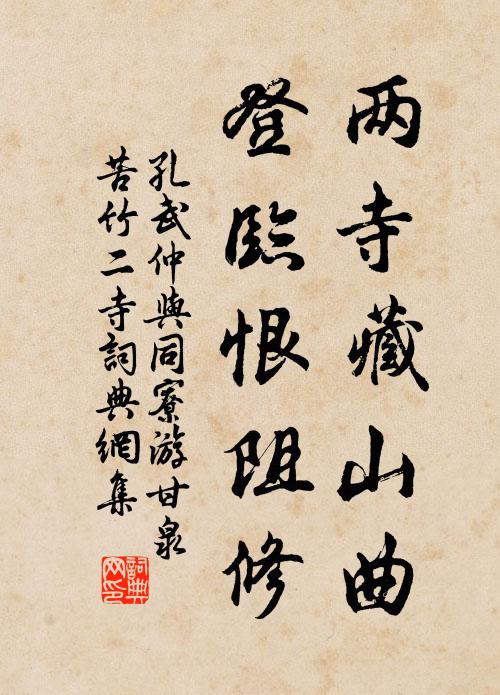 两寺藏山曲
登臨恨阻修
孔武仲與同寮游甘泉
苦竹二寺詞典網集
詞典网印